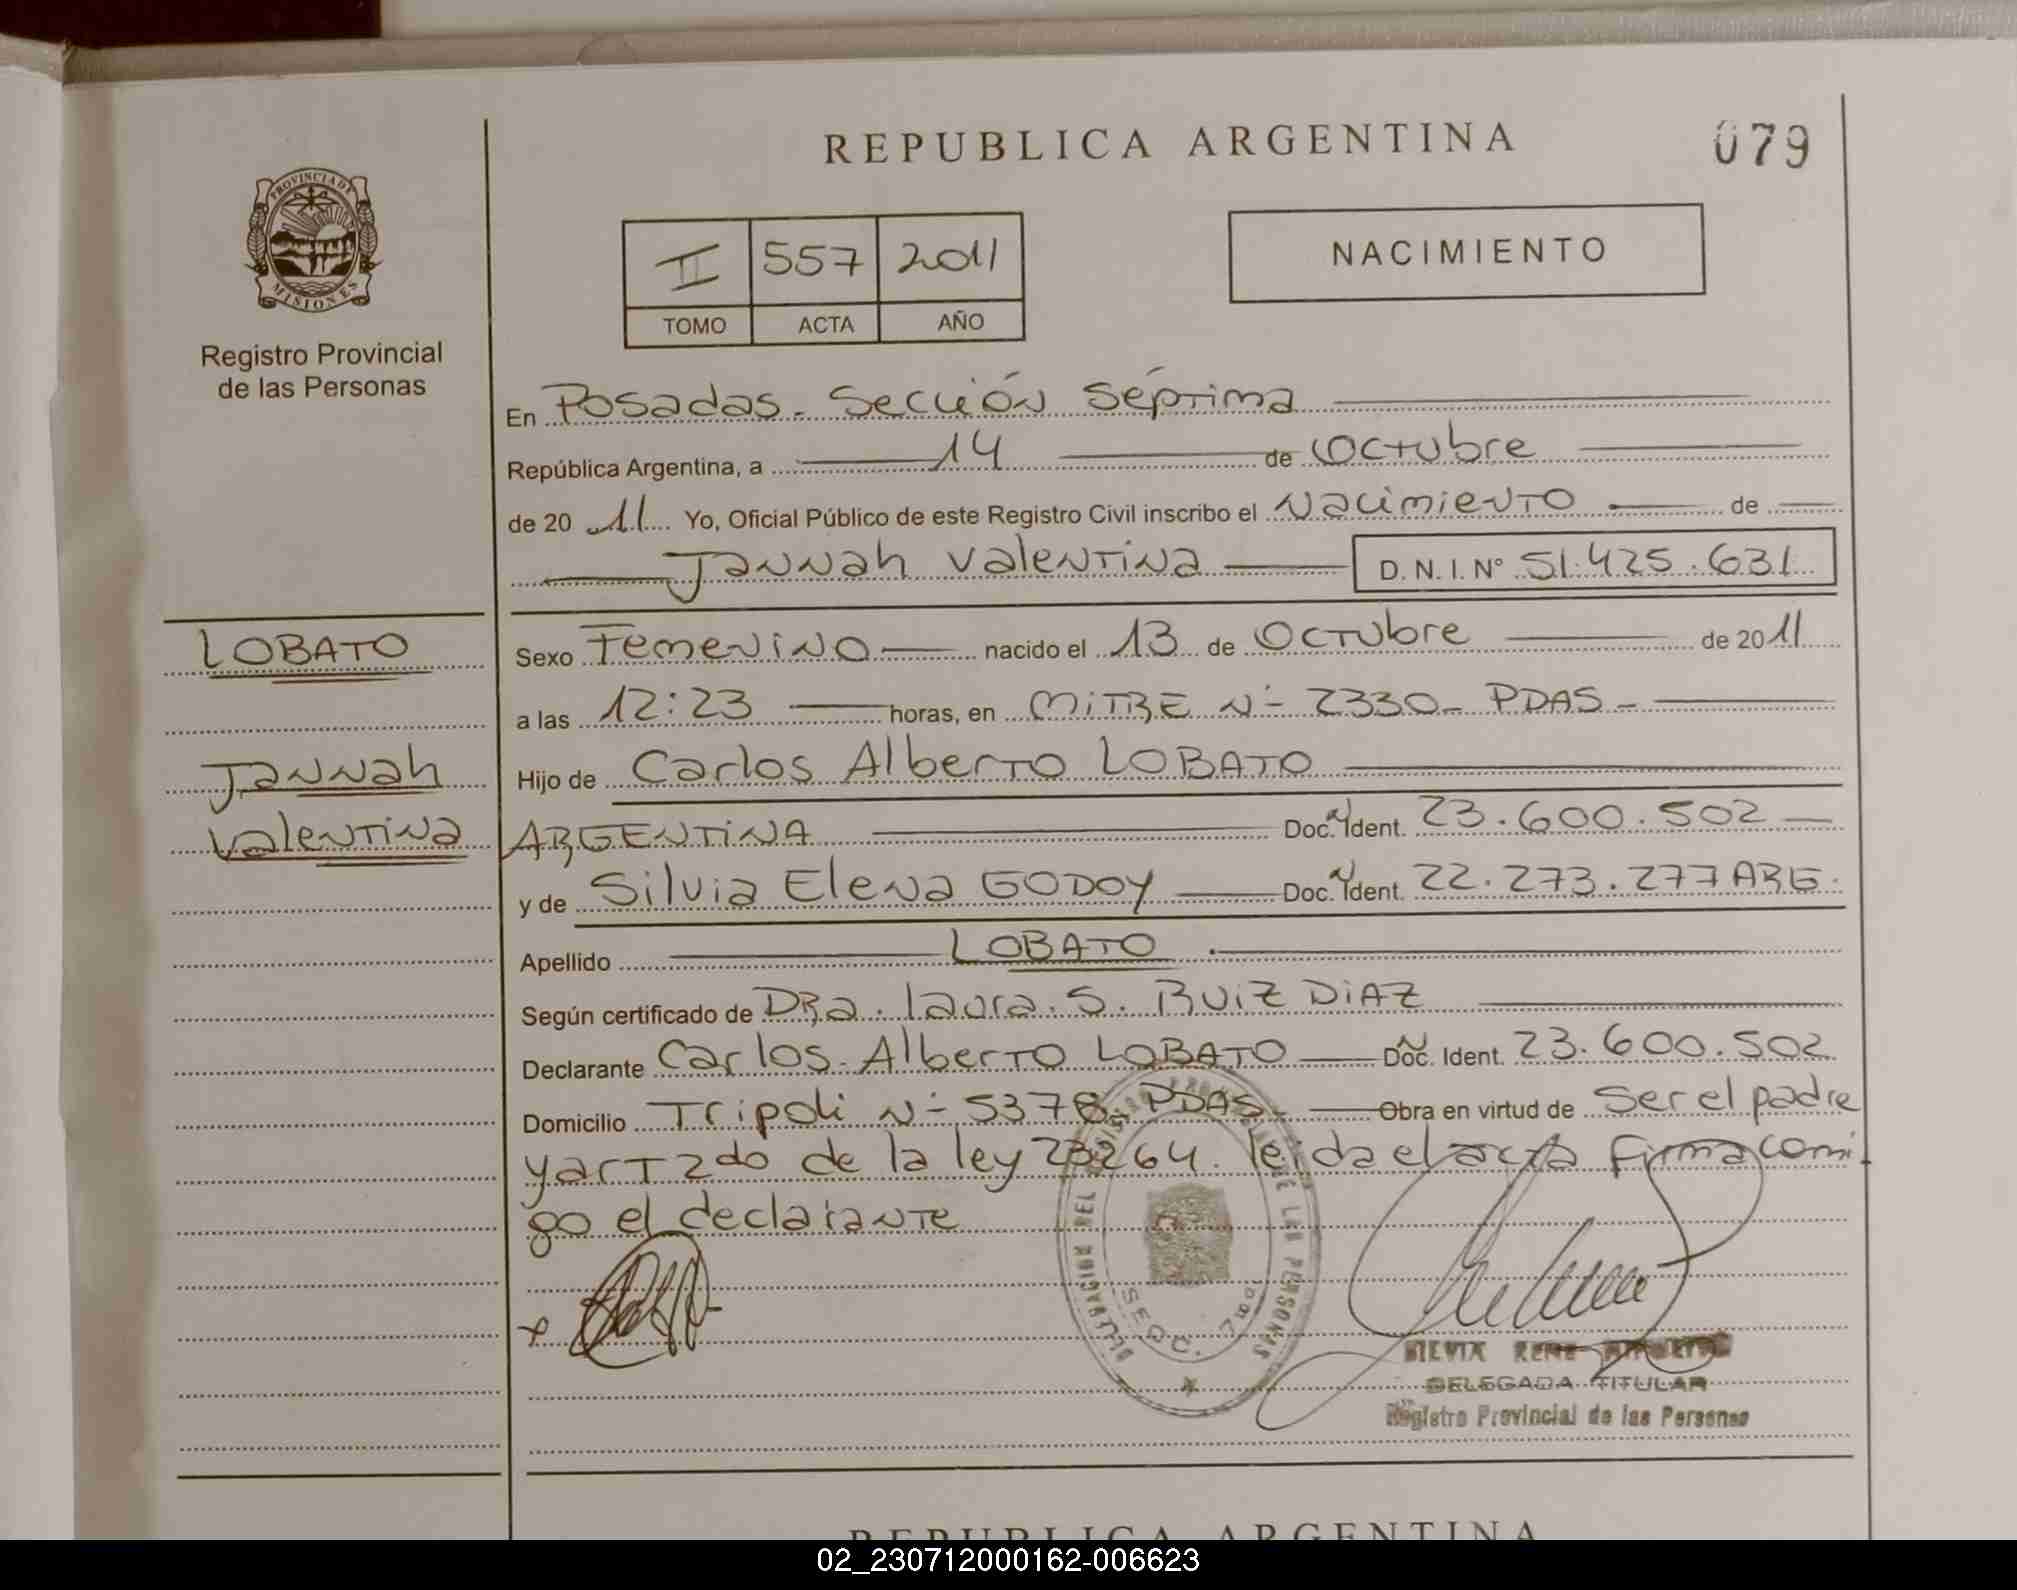 REPUBLICA ARGENTINA
079
PROVINCIA DE
MISIONES
Registro Provincial
de las Personas
II 557 2011
TOMO ACTA AÑO
NACIMIENTO
En Posadas. Sección Séptima
República Argentina, a 14 de Octubre
de 20 11 Yo, Oficial Público de este Registro Civil inscribo el Nacimiento de
Jannah Valentina D.N.I.N° 51.425.631
LOBATO
Jannah
Valentina
Sexo Femenino nacido el 13 de Octubre de 2011
a las 12:23 horas, en MITRE N- 2330- PDAS-
Hijo de Carlos Alberto LOBATO
ARGENTINA Doc. Ident. 23.600.502
y de Silvia Elena GODOY Doc. Ident. 22.273.277 ARG.
Apellido LOBATO
Según certificado de DRa. laura. S. RUIZ DIAZ
Declarante Carlos. Alberto LOBATO Doc. Ident. 23.600.502
Domicilio Tripoli N- 5378- PDAS- Obra en virtud de Ser el padre
y art 2do de la ley 23264. leida el acta firma comi
go el declarante
SECC. 7ma
DELEGADA TITULAR
Registro Provincial de las Personas
REPUBLICA ARGENTINA
02_230712000162-006623